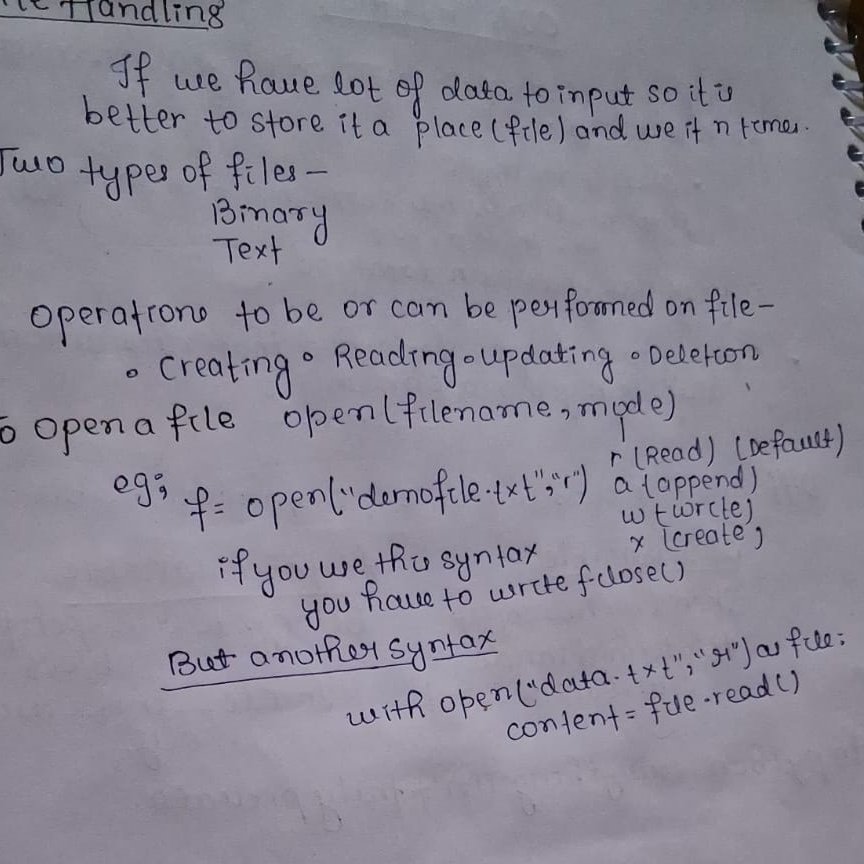 File Handling
If we have lot of data to input so it is
better to store it a place (file) and use it n times.
Two types of files -
Binary
Text
Operations to be or can be performed on file -
• Creating • Reading • updating • Deletion
To open a file open(filename, mode)
r (Read) (Default)
a (append)
w (write)
x (create)
eg; f = open("demofile.txt", "r")
if you use this syntax
you have to write f.close()
But another syntax
with open("data.txt", "r") as file:
content = file.read()